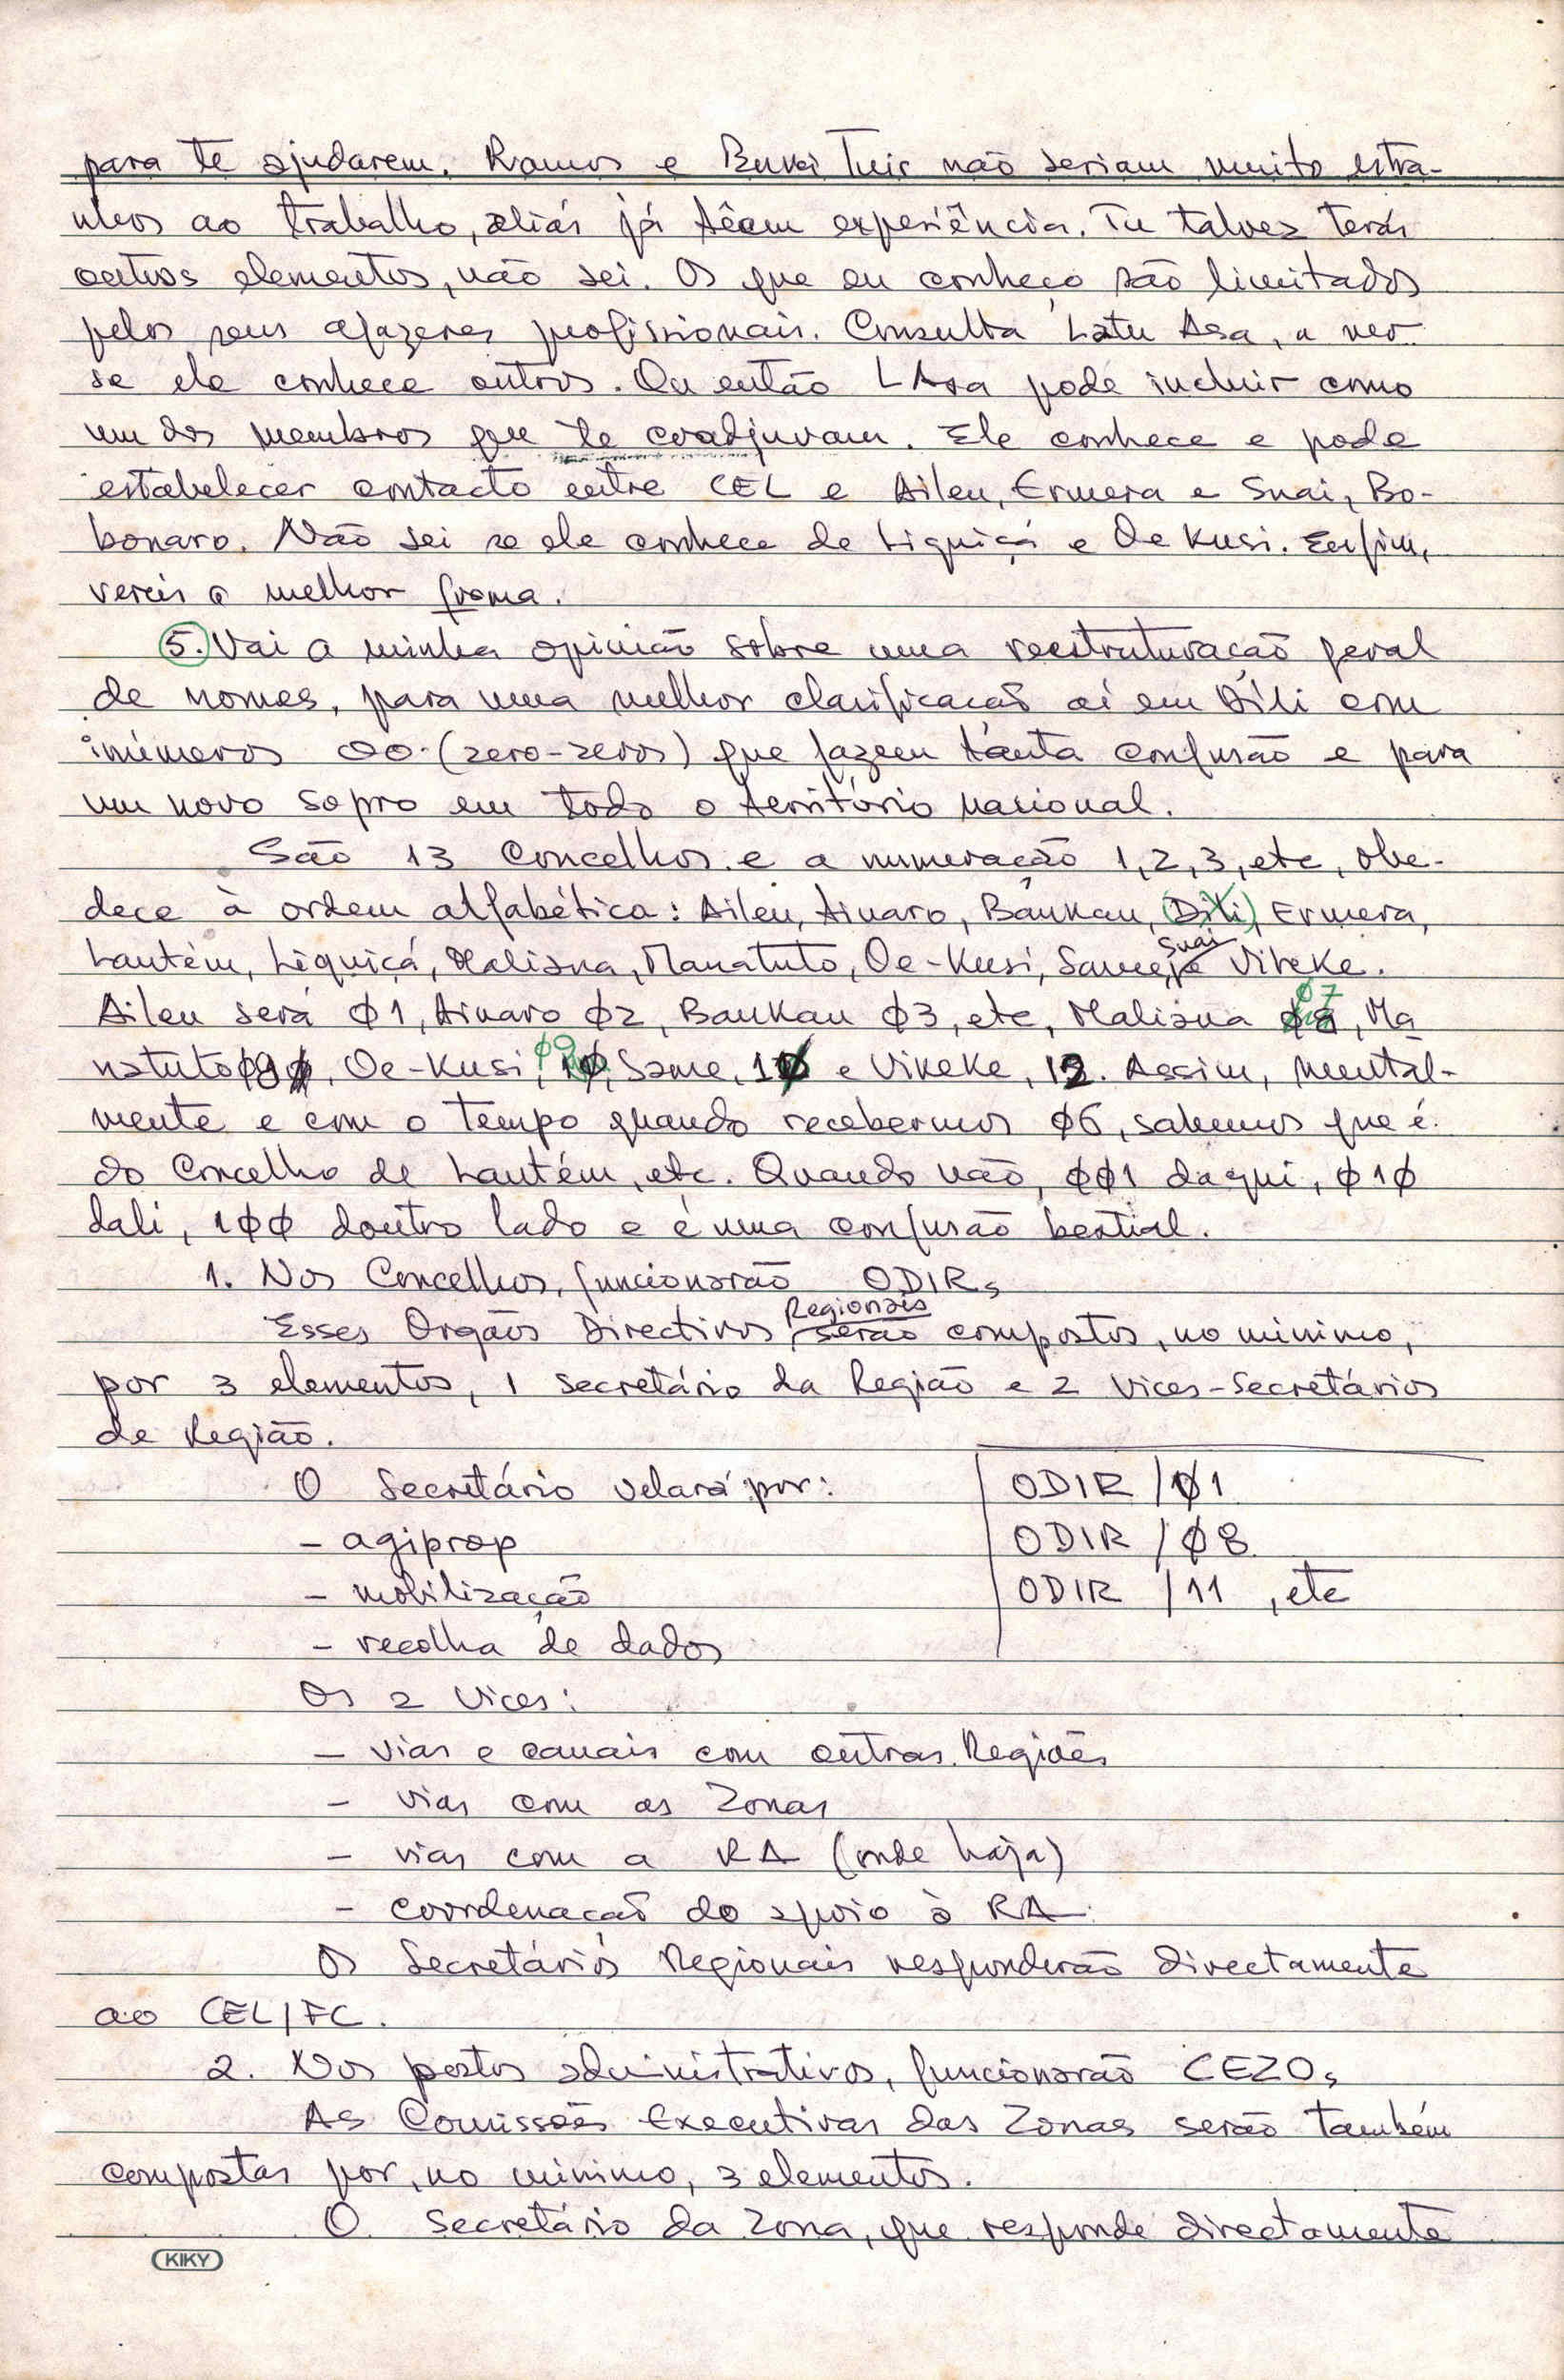 para te ajudarem. Ramos e Bukei Tuir não seriam muito estra-
nhos ao trabalho, aliás já têem experiência. Tu talvez terás
outros elementos, não sei. Os que eu conheço são limitados
pelos seus afazeres profissionais. Consulta Latu Asa, a ver
se ele conhece outros. Ou então LAsa pode incluir como
um dos membros que te coadjuvam. Ele conhece e pode
estabelecer contacto entre CEL e Aileu, Ermera e Suai, Bo-
bonaro. Não sei se ele conhece de Liquiçá e Oe Kusi. Enfim,
vereis a melhor forma.
5. Vai a minha opinião sobre uma reestruturação geral
de nomes, para uma melhor clarificação aí em Díli com
inúmeros OO (zero-zeros) que fazem tanta confusão e para
um novo sopro em todo o território nacional.
São 13 Concelhos e a numeração 1, 2, 3, etc, obe-
dece à ordem alfabética: Aileu, Ainaro, Baukau, (Díli), Ermera,
Lautém, Liquiçá, Maliana, Manatuto, Oe-Kusi, Same, Suai e Vikeke.
Aileu será Ø1, Ainaro Ø2, Baukau Ø3, etc, Maliana Ø7, Ma
natuto Ø8, Oe-Kusi, Ø9, Same, 1Ø e Vikeke, 12. Assim, mental-
mente e com o tempo quando recebermos Ø6, sabemos que é
do Concelho de Lautém, etc. Quando não, ØØ1 daqui, Ø1Ø
dali, 1ØØ doutro lado e é uma confusão bestial.
1. Nos Concelhos, funcionarão ODIRs
Esses Orgãos Directivos Regionais serão compostos, no mínimo,
por 3 elementos, 1 secretário da Região e 2 Vices-Secretários
de Região.
O Secretário velará por: ODIR /Ø1
- agiprop ODIR /Ø8
- mobilização ODIR /11, etc
- recolha de dados
Os 2 Vices:
- vias e canais com outras Regiões
- vias com as Zonas
- vias com a RA (onde haja)
- coordenação do apoio à RA
Os Secretários Regionais responderão directamente
ao CEL/FC.
2. Nos postos administrativos, funcionarão CEZOs
As Comissões Executivas das Zonas serão também
compostas por, no mínimo, 3 elementos.
O Secretário da Zona, que responde directamente
KIKY